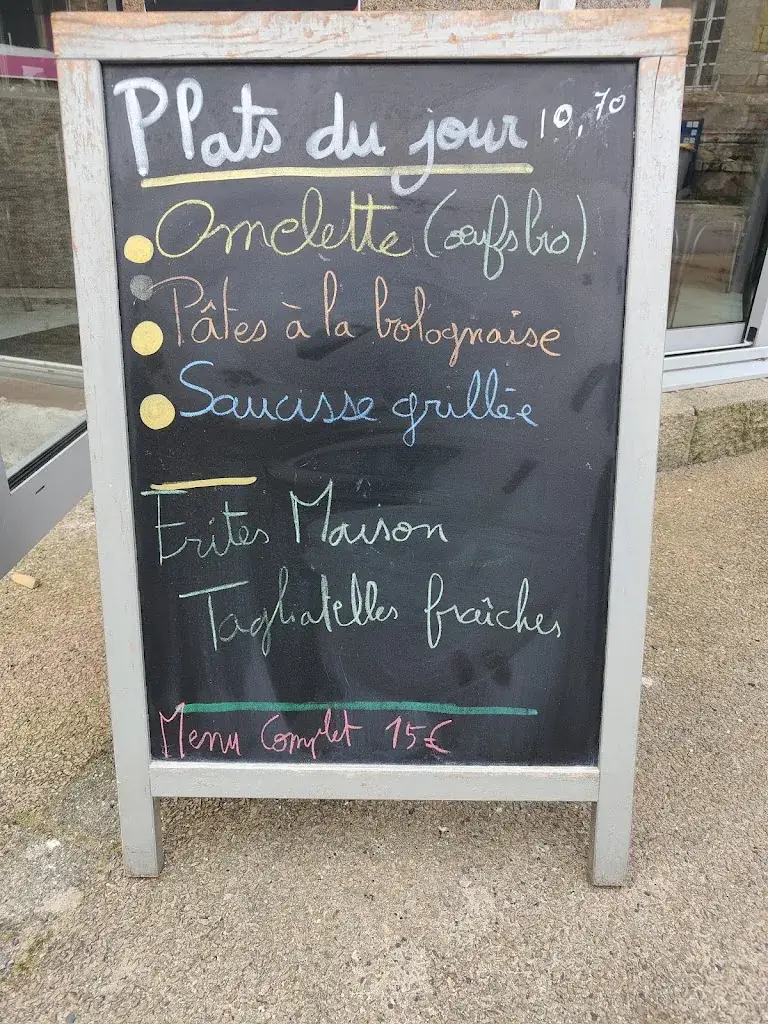 Plats du jour 10,70
Omelette (œufs bio)
Pâtes à la bolognaise
Saucisse grillée
Frites Maison
Tagliatelles fraîches
Menu Complet 15€